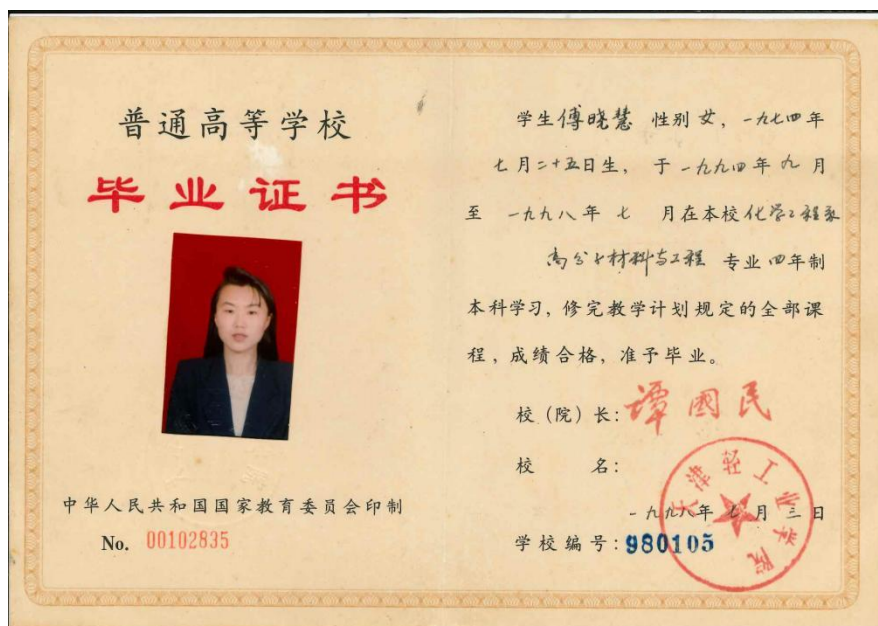 普通高等学校
毕业证书
中华人民共和国国家教育委员会印制
No. 00102835
学生傅晓慧 性别女，一九七四年
七月二十五日生，于一九九四年九月
至一九九八年七月在本校化学工程系
高分子材料与工程 专业四年制
本科学习，修完教学计划规定的全部课
程，成绩合格，准予毕业。
校（院）长：谭國民
校名：
天津轻工业学院
一九九八年七月三日
学校编号：980105